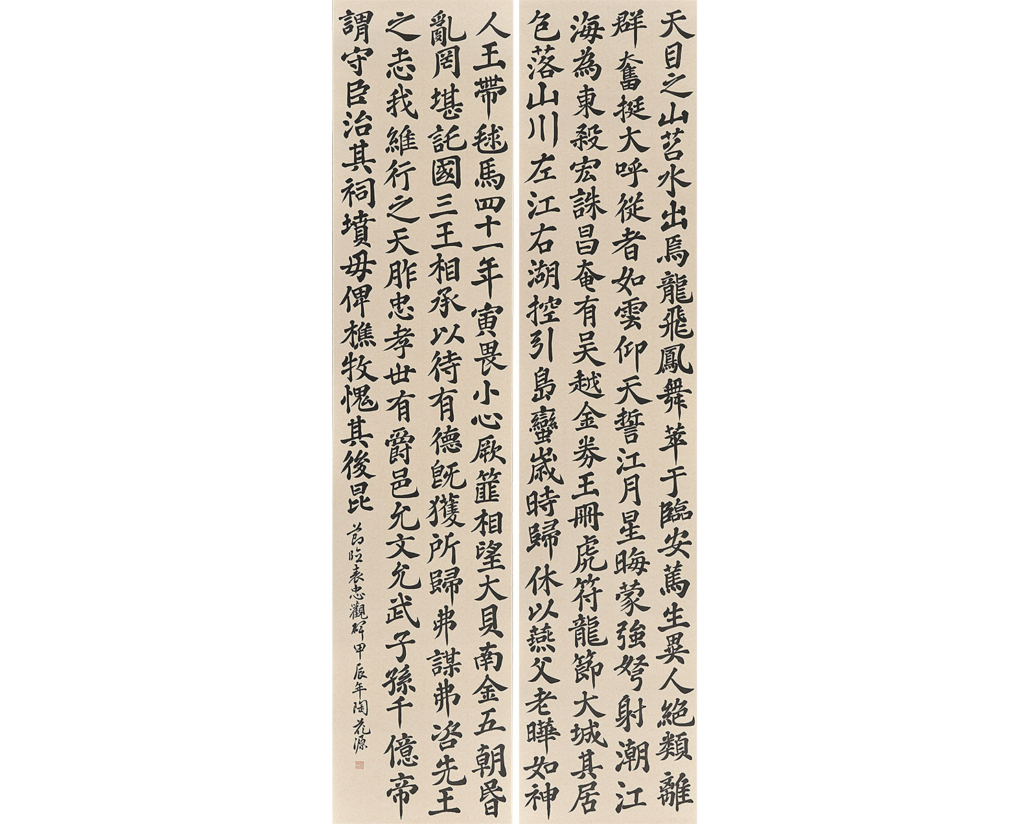 天目之山苕水出焉龍飛鳳舞萃于臨安篤生異人絕類離
群奮挺大呼從者如雲仰天誓江月星晦蒙強弩射潮江
海為東殺宏誅昌奄有吴越金券玉冊虎符龍節大城其居
包落山川左江右湖控引島蠻歲時歸休以燕父老曄如神
人玉帶毬馬四十一年寅畏小心厥篚相望大貝南金五朝昏
亂罔堪託國三王相承以待有德既獲所歸弗謀弗咨先王
之志我維行之天胙忠孝世有爵邑允文允武子孫千億帝
謂守臣治其祠墳毋俾樵牧愧其後昆
節臨表忠觀碑甲辰年陶花源